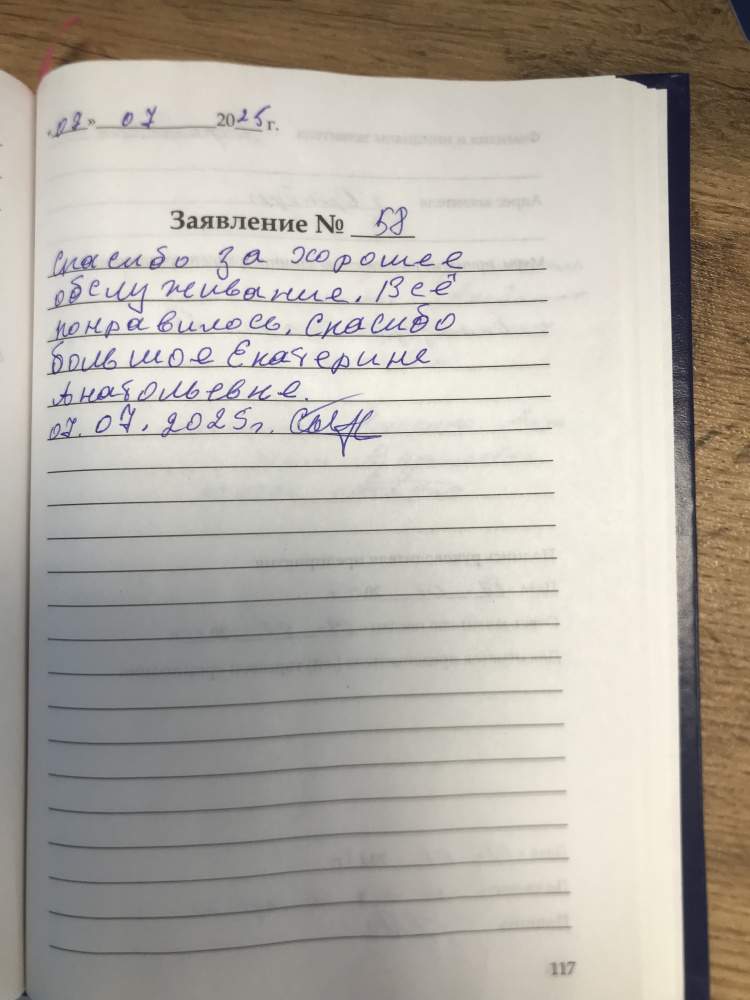 «07» 07 2025 г.
Заявление № 58
Спасибо за хорошее
обслуживание. Всё
понравилось. Спасибо
большое Екатерине
Анатольевне.
07.07.2025г.
117